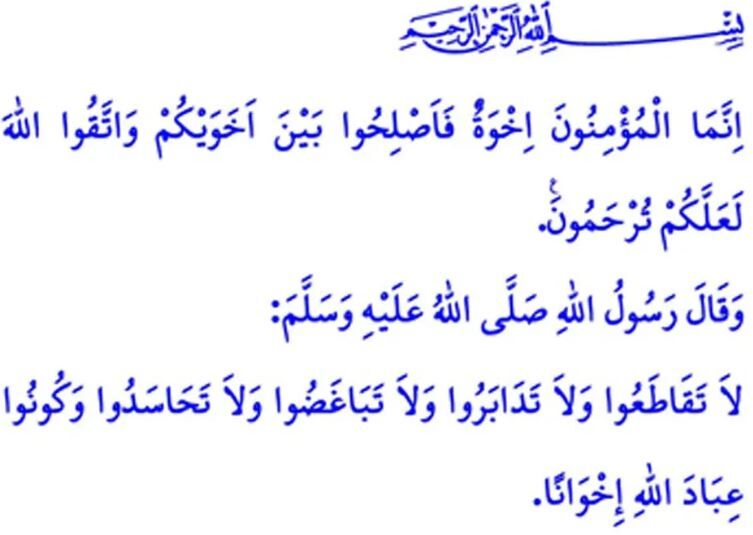 بِسْمِ اللهِ الرَّحْمٰنِ الرَّحِيمِ
اِنَّمَا الْمُؤْمِنُونَ اِخْوَةٌ فَاَصْلِحُوا بَيْنَ اَخَوَيْكُمْ وَاتَّقُوا اللهَ
لَعَلَّكُمْ تُرْحَمُونَۧ.
وَقَالَ رَسُولُ اللهِ صَلَّى اللهُ عَلَيْهِ وَسَلَّمَ:
لاَ تَقَاطَعُوا وَلاَ تَدَابَرُوا وَلاَ تَبَاغَضُوا وَلاَ تَحَاسَدُوا وَكُونُوا
عِبَادَ اللهِ إِخْوَانًا.